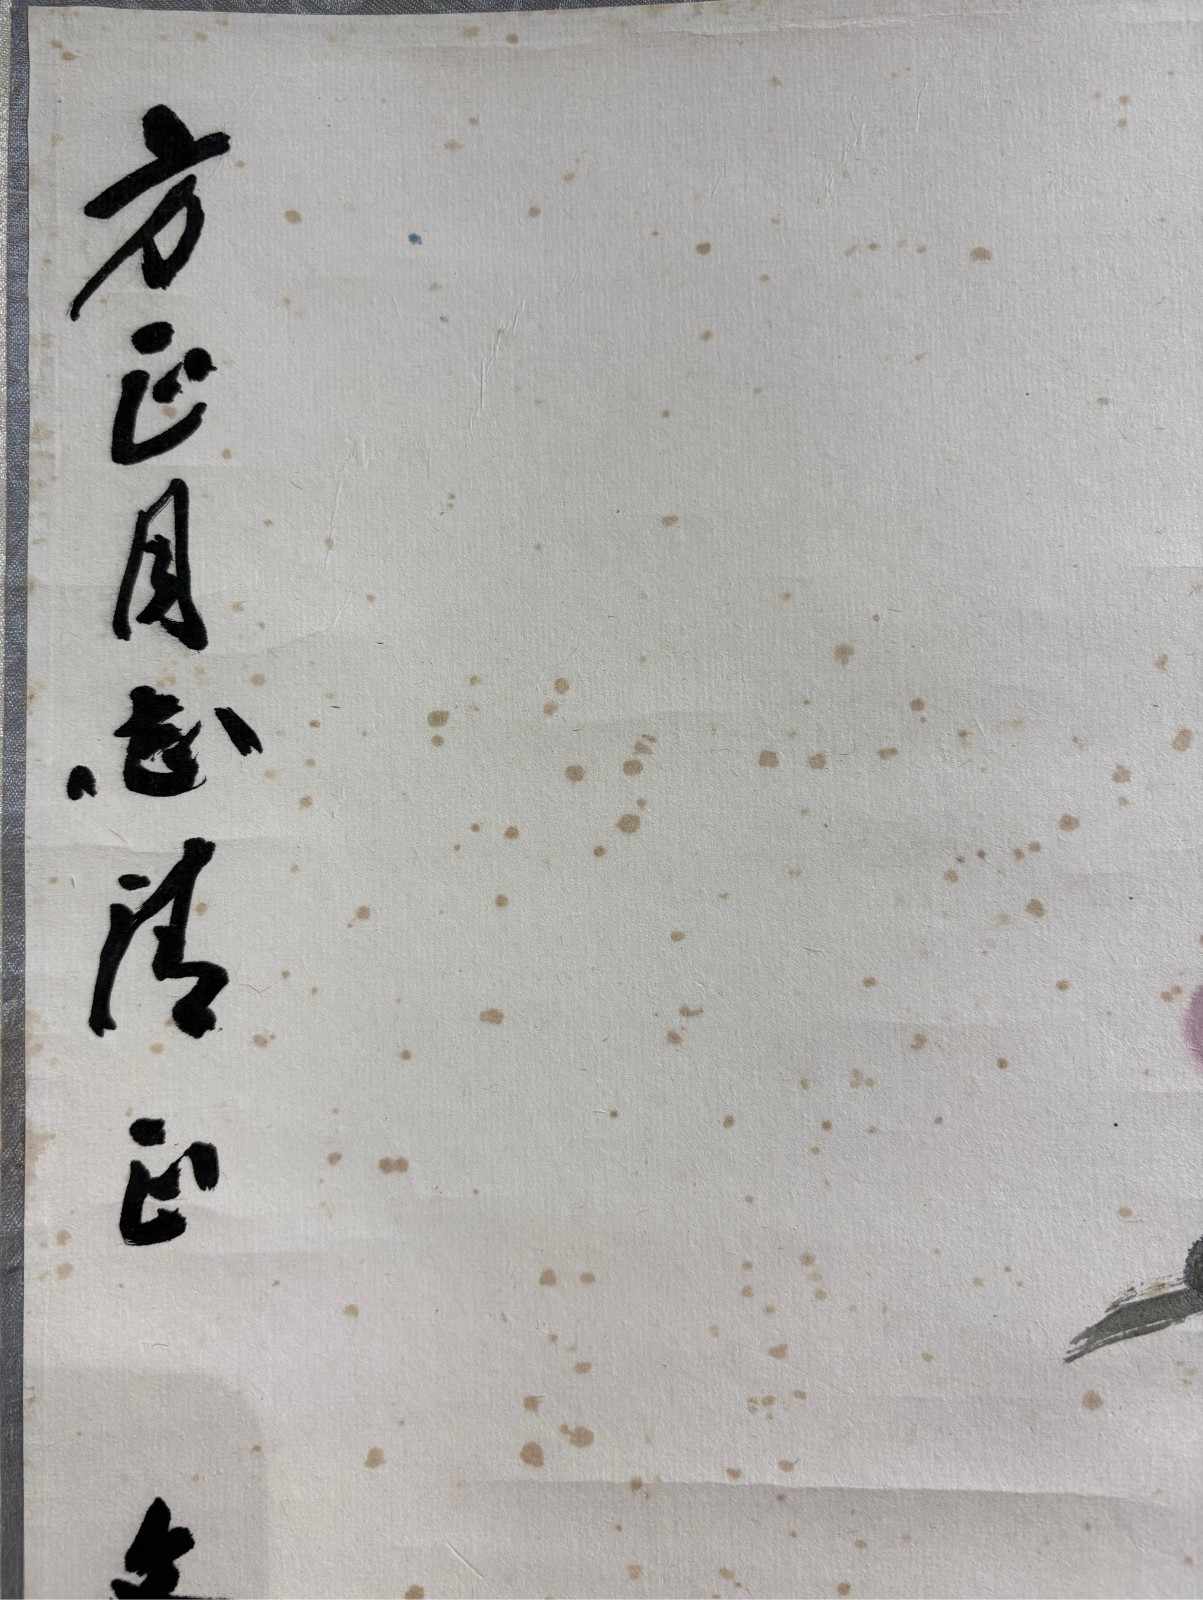 方正同志清正